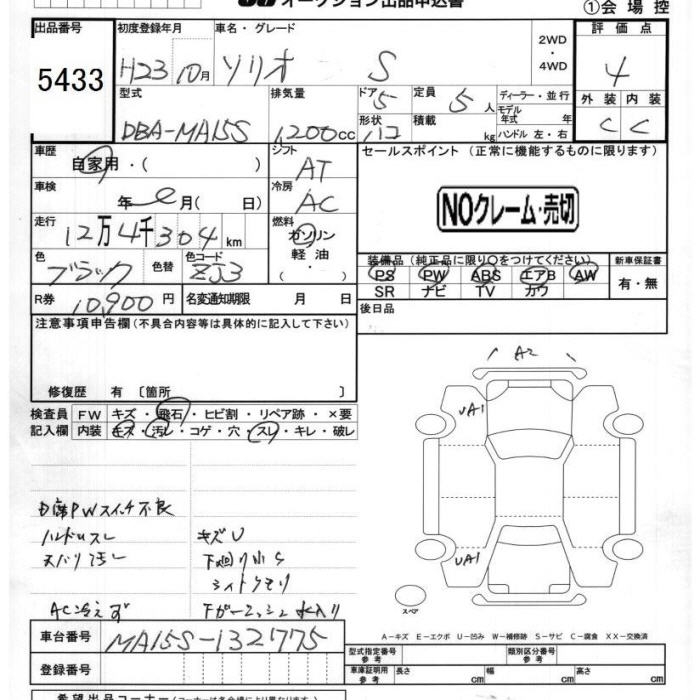 オークション出品申込書
①会場控
出品番号 初度登録年月 車名・グレード 2WD・4WD 評価点
5433 H23 10月 ソリオ S 4
型式 排気量 ドア 5 定員 5人 ディーラー・並行
DBA-MA15S 1200cc 形状 ハコ 積載 kg モデル年式 年 ハンドル 左・右
外装 内装
C C
車歴 自家用・( ) シフト AT
セールスポイント (正常に機能するものに限ります)
車検 年 月( 日) 冷房 AC
NOクレーム・売切
走行 12万4千304km 燃料 ガソリン 軽油・
色 ブラック 色替 色コード ZJ3
装備品(純正品に限り○をつけてください。) 新車保証書
PS PW ABS エアB AW 有・無
SR ナビ TV カワ
R券 10,900円 名変通知期限 月 日
後日品
注意事項申告欄(不具合内容等は具体的に記入して下さい)
修復歴 有 〔箇所 〕
検査員 FW キズ・飛石・ヒビ割・リペア跡・×要
記入欄 内装 キズ・汚レ・コゲ・穴・スレ・キレ・破レ
A2
UA1
UA1
スペア
D席PWスイッチ不良
ハンドルスレ キズU
天バリ汚レ 下廻り小S
AC冷えず
A-キズ E-エクボ U-凹み W-補修跡 S-サビ C-腐食 XX-交換済
車台番号 MA15S-132775
登録番号
型式指定番号 参考 類別区分番号 参考
車庫証明用 参考 長さ cm 幅 cm 高さ cm
希望出品コーナー